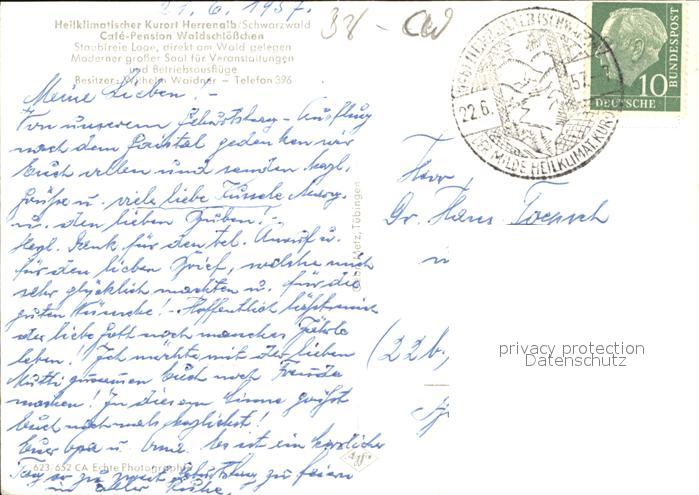 21.6.1957.
38 - CW
Heilklimatischer Kurort Herrenalb/Schwarzwald
Café-Pension Waldschlößchen
Staubfreie Lage, direkt am Wald gelegen
Moderner großer Saal für Veranstaltungen
und Betriebsausflüge
Besitzer: Wilhelm Waidner – Telefon 396
Meine Lieben! -
Von unserem Geburtstag-Ausflug
nach dem gedenken wir
Euch allen und senden herzl.
Grüße u. viele liebe Küsse
u. den lieben Buben! -
Herzl. Dank für den tel. Anruf u.
für den lieben Brief, welche mich
sehr glücklich machten u. für die
guten Wünsche! - Hoffentlich läßt mich
der liebe Gott noch manches Jährle
leben! Ich möchte mit der lieben
Mutti zusammen Euch noch Freude
machen! In diesem Sinne grüßt
Euch nochmals herzlichst!
Euer Opa u. Oma. Es ist ein herrlicher
Tag so zu zweit Geburtstag zu feiern
in aller Ruhe.
623/652 CA Echte Photographie
Metz, Tübingen
22.6.57
MILDE HEILKLIMAT. KURORT
10
DEUTSCHE BUNDESPOST
Herrn
Dr. Hans
(22b)
privacy protection
Datenschutz